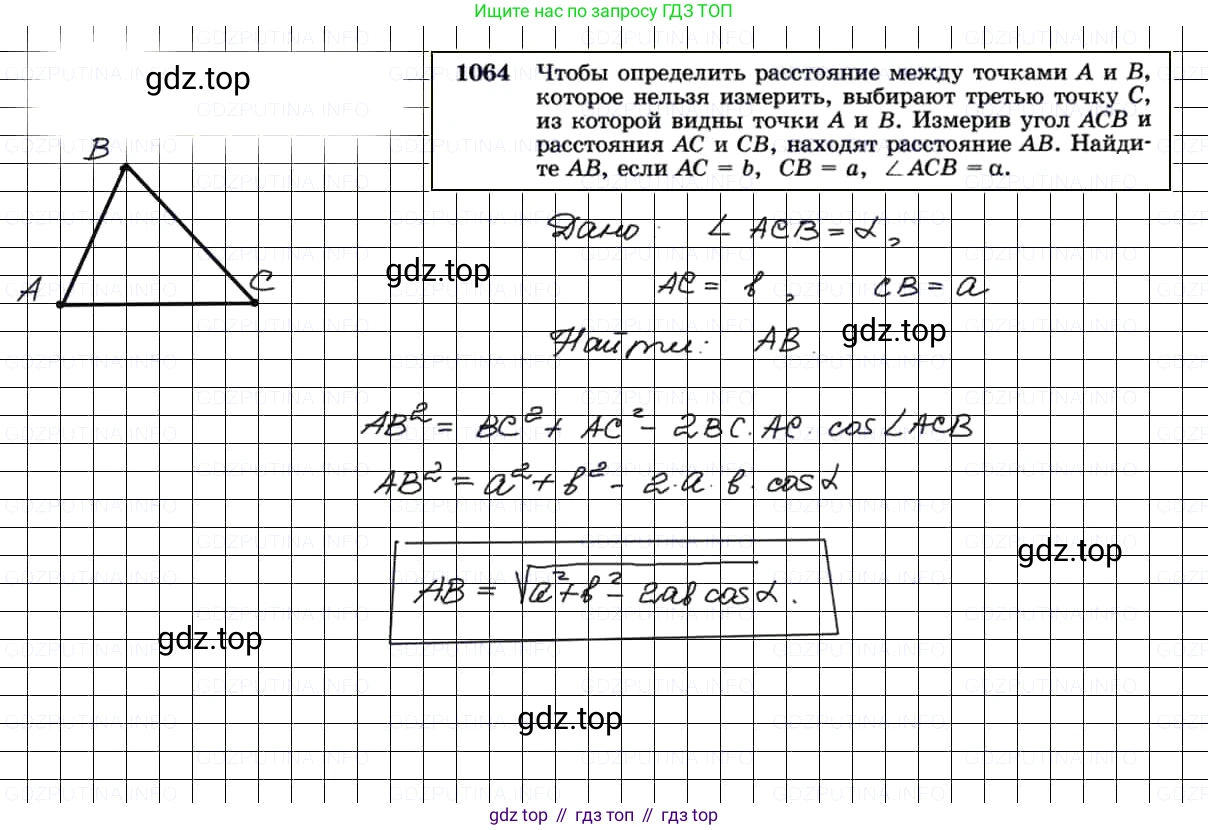 Ищите нас по запросу ГДЗ ТОП
gdz.top
1064 Чтобы определить расстояние между точками A и B,
которое нельзя измерить, выбирают третью точку C,
из которой видны точки A и B. Измерив угол ACB и
расстояния AC и CB, находят расстояние AB. Найди-
те AB, если AC = b, CB = a, ∠ACB = α.
B
A
C
Дано: ∠ ACB = α,
gdz.top
AC = b, CB = a
Найти: AB.
gdz.top
AB² = BC² + AC² - 2BC · AC · cos∠ACB
AB² = a² + b² - 2·a·b·cosα
gdz.top
AB = √a²+b²-2ab cosα.
gdz.top
gdz.top
gdz top // гдз топ // гдз top